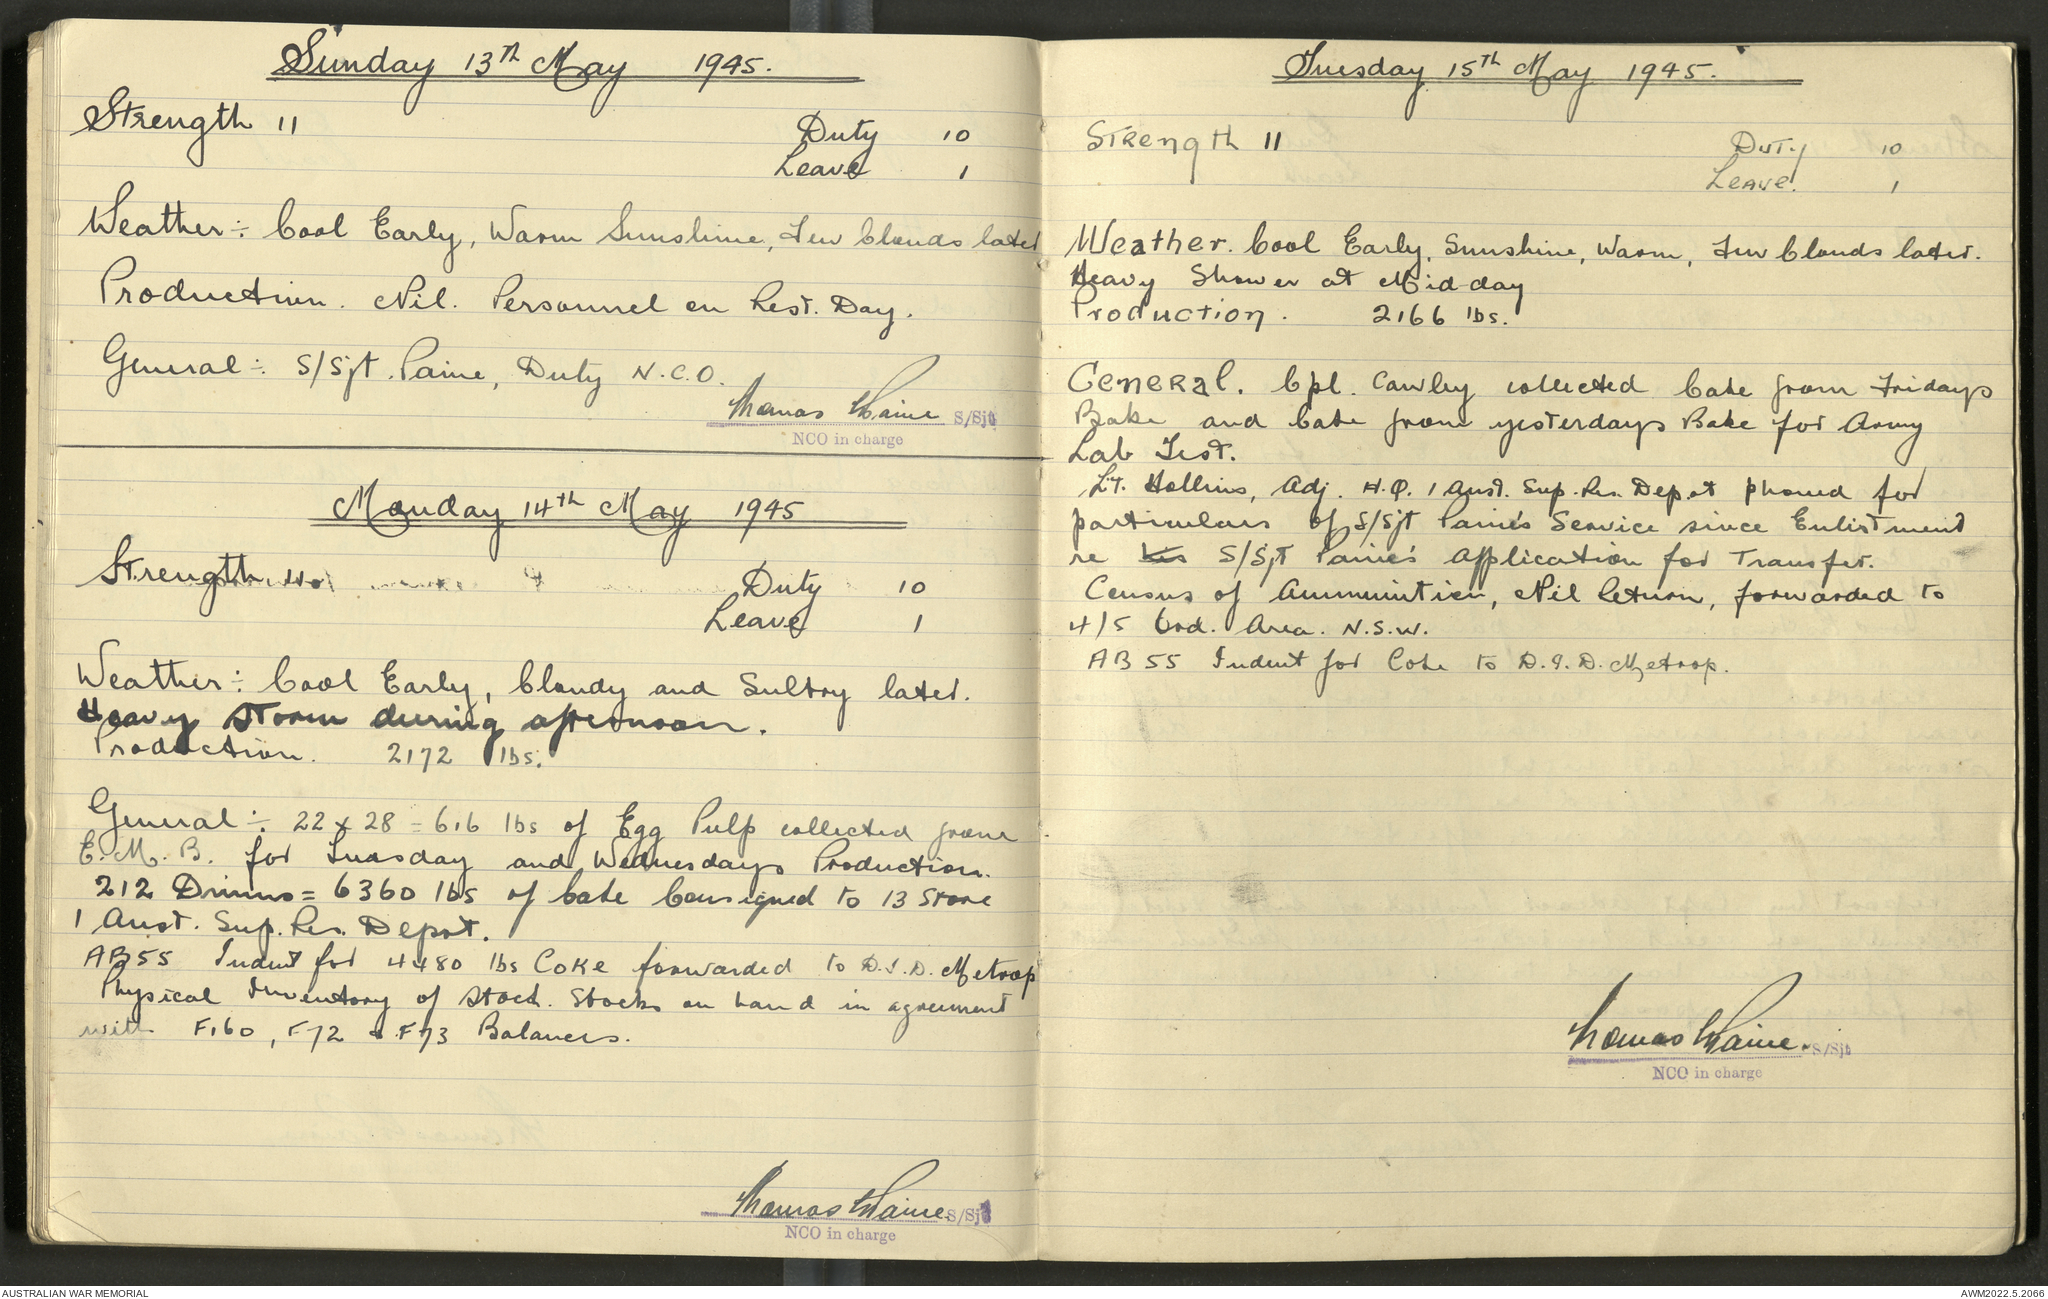 Sunday 13th May 1945.
Strength 11 Duty 10
Leave 1
Weather:- Cool Early, Warm Sunshine, Few Clouds later
Production. Nil. Personnel on Rest. Day.
General:- S/Sjt. Paine, Duty N.C.O.
Thomas Paine S/Sjt
NCO in charge
Monday 14th May 1945
Strength 11 Duty 10
Leave 1
Weather:- Cool Early, Cloudy and Sultry later.
Heavy Storm during afternoon.
Production. 2172 lbs.
General:- 22 x 28 = 616 lbs of Egg Pulp collected from
E.M.B. for Tuesday and Wednesdays Production.
212 Drums = 6360 lbs of Cake Consigned to 13 Store
1 Aust. Sup. Res. Depot.
AB55 Indent for 4480 lbs Coke forwarded to D.S.D. Metrop
Physical Inventory of Stock. Stocks on hand in agreement
with F160, F72 & F73 Balances.
Thomas Paine S/Sjt
NCO in charge
Tuesday 15th May 1945.
Strength 11 Duty 10
Leave. 1
Weather. Cool Early, Sunshine, Warm, Few Clouds later.
Heavy Shower at Mid-day
Production. 2166 lbs.
General. Cpl. Cawley collected Cake from Fridays
Bake and Cake from yesterdays Bake for Army
Lab Test.
Lt. Hollins, Adj. H.Q. 1 Aust. Sup. Res. Depot phoned for
particulars of S/Sjt Paine's Service since Enlistment
re his S/Sjt Paine's Application for Transfer.
Census of Ammunition, Nil Return, forwarded to
4/5 Ord. Area. N.S.W.
AB 55 Indent for Coke to D.S.D. Metrop.
Thomas Paine. S/Sjt
NCO in charge
AUSTRALIAN WAR MEMORIAL
AWM2022.5.2066